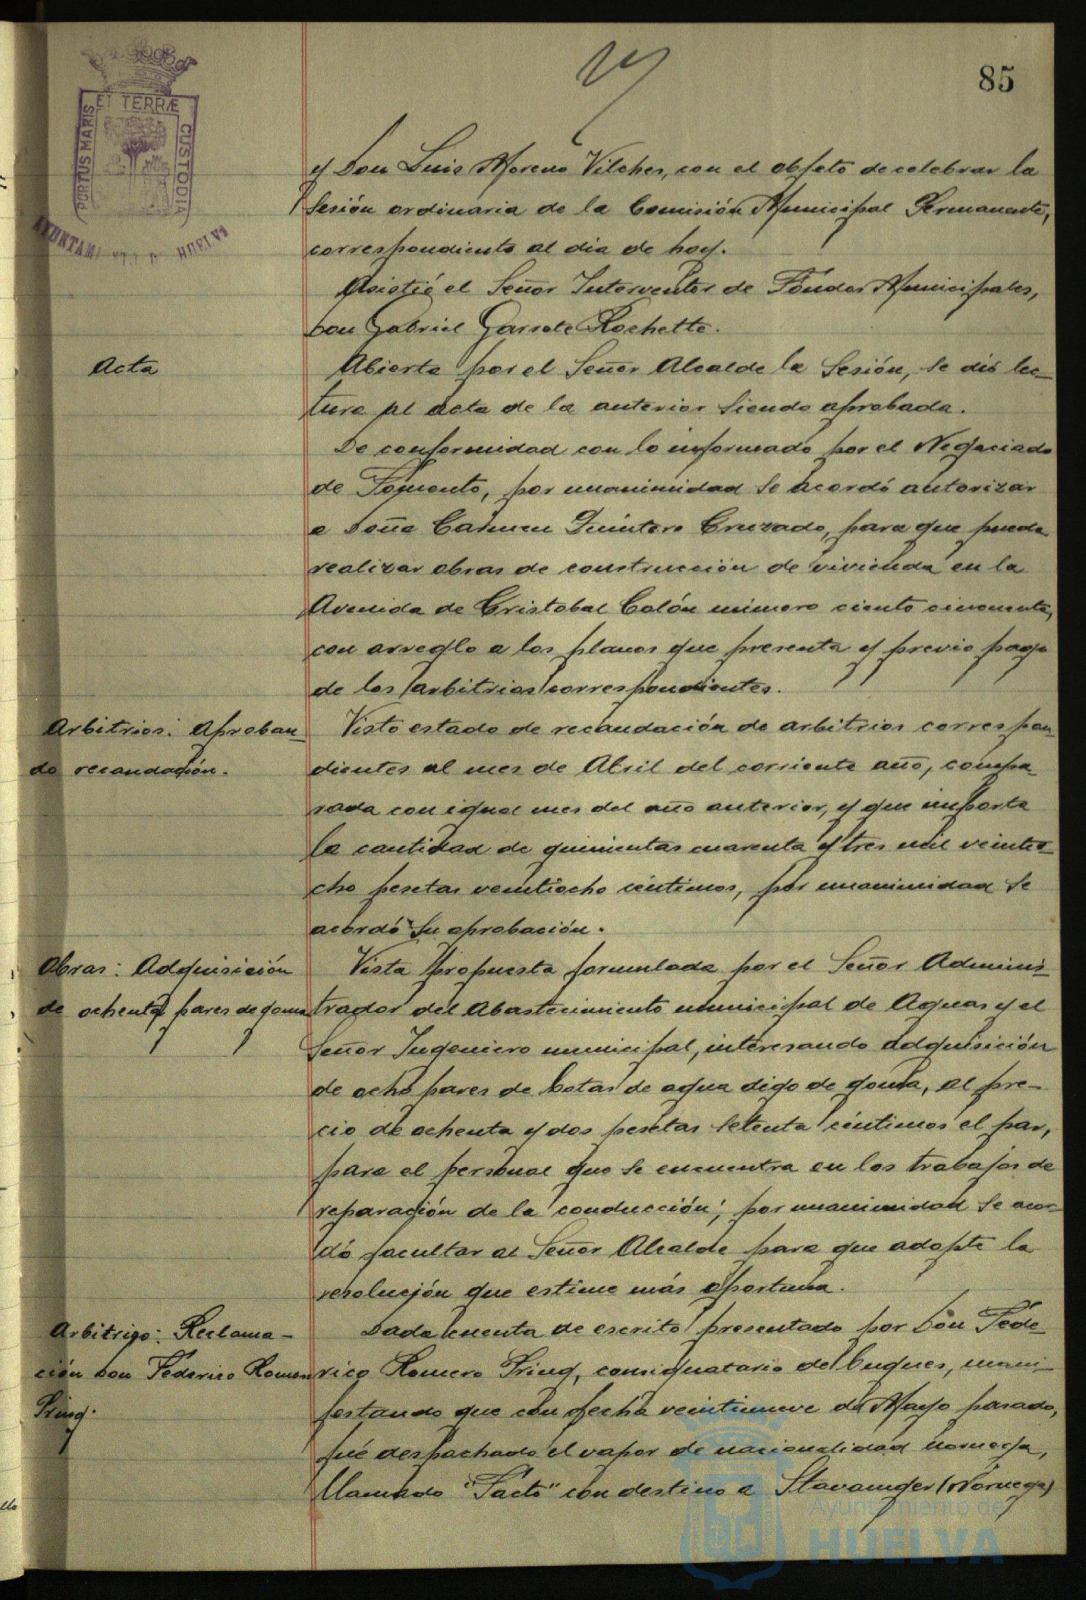 85
PORTUS MARIS ET TERRÆ CUSTODIA
AYUNTAMI HUELVA
y Don Luis Moreno Vilches, con el objeto de celebrar la
Sesión ordinaria de la Comisión Municipal Permanente,
correspondiente al dia de hoy.
Asistió el Señor Interventor de Fondos Municipales,
Don Gabriel Garrote Rochette.
Acta
Abierta por el Señor Alcalde la Sesión, se dió lec-
tura al acta de la anterior siendo aprobada.
De conformidad con lo informado por el Negociado
de Fomento, por unanimidad se acordó autorizar
a Doña Carmen Quintero Cruzado, para que pueda
realizar obras de construcción de vivienda en la
Avenida de Cristobal Colón número ciento cincuenta,
con arreglo a los planos que presenta y previo pago
de los arbitrios correspondientes.
Arbitrios: Aproban-
do recaudación.
Visto estado de recaudación de arbitrios correspon-
dientes al mes de Abril del corriente año, compa-
rada con igual mes del año anterior, y que importa
la cantidad de quinientas cuarenta y tres mil veintio-
cho pesetas veintiocho céntimos, por unanimidad se
acordó su aprobación.
Obras: Adquisición
de ochenta pares de goma
Vista propuesta formulada por el Señor Adminis-
trador del Abastecimiento municipal de Aguas y el
Señor Ingeniero municipal, interesando adquisición
de ocho pares de botas de agua digo de goma, al pre-
cio de ochenta y dos pesetas setenta céntimos el par,
para el personal que se encuentra en los trabajos de
reparación de la conducción; por unanimidad se acor-
dó facultar al Señor Alcalde para que adopte la
resolución que estime más oportuna.
Arbitrios: Reclama-
ción Don Federico Romero
Dada cuenta de escrito presentado por Don Fede-
rico Romero consignatario de buques, mani-
festando que con fecha veintinueve de Mayo pasado,
fué despachado el vapor de nacionalidad noruega,
llamado "Facto" con destino a Stavanger (Noruega)
Ayuntamiento de
HUELVA